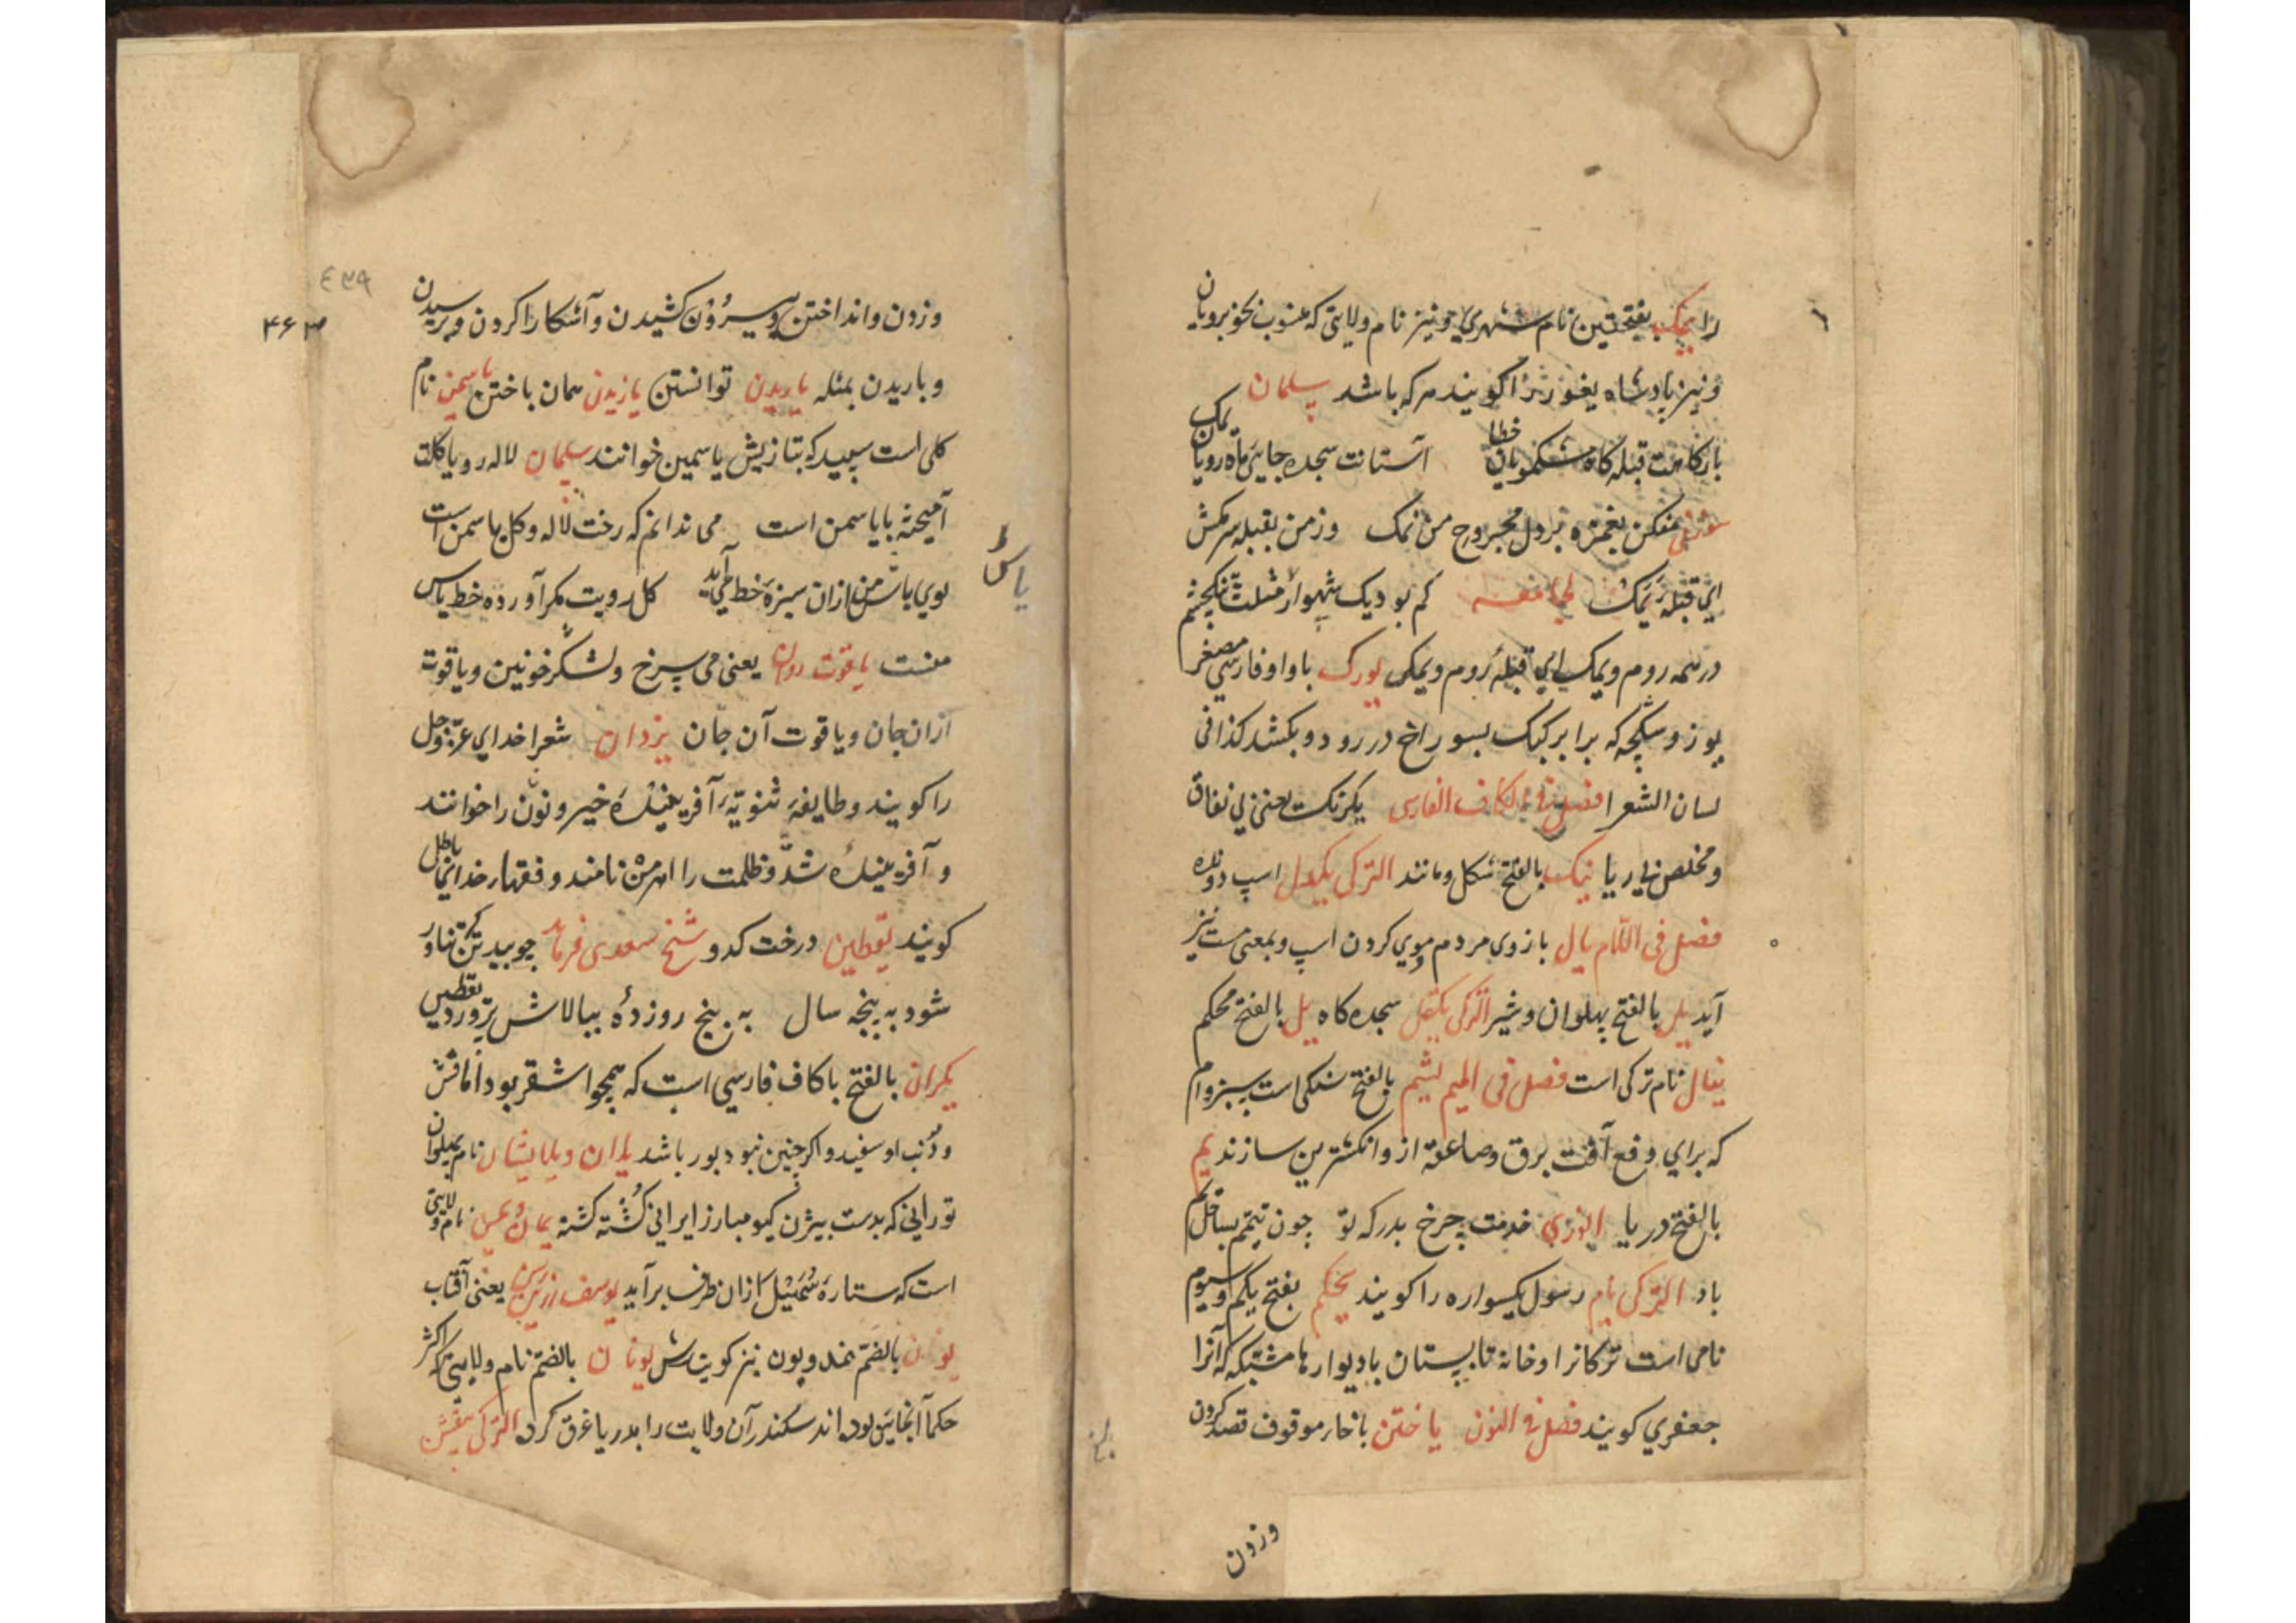 را یمک بفتحتین نام شهری و نیز نام ولایتی که منسوب بخوبرویان
و نیز پادشاه یغوز را کویند هرکه باشد سلمان
بارکاهت قبله کاه مشکمویان خطا آستانت سجده جای ماه رویان یمک
سوزنی مفکن بغمزه بر دل مجروح من نمک وز من بقبله سرمکش
ای قبله یمک کم بود یک شهوار
در همه روم و یمک ای قبله روم و یمکی یورک با واو فارسی مصغر
یوز و سکچه که برابر کبک بسوراخ در رود و بکشد کذا فی
لسان الشعرا فصل فی الکاف الفارسی یکرنک یعنی بی نفاق
و مخلص بی ریا بالفتح شکل و مانند الترکی اسپ دونده
فصل فی اللام یال بازوی مردم و موی کردن اسپ و بمعنی نیز
آید یل بالفتح پهلوان و شیر الترکی سجده کاه بالفتح محکم
ینال نام ترکی است فصل فی المیم یشم بالفتح سنکی است سبز وام
که برای دفع آفت برق و صاعقه ازو انکشترین سازند یم
بالفتح دریا انوری خدمت چرخ بدرکه تو چون تیمم بساحل یم
باد الترکی یام رسول یکسواره را کویند یخکم بفتح یکم و سیوم
نامی است ترکانرا و خانه تابستان با دیوارها مشبکه که آنرا
جعفری کویند فصل فی النون یاختن با خاء موقوف قصد کردن
وزدن
٤٣٩
۴۶۳
وزدن و انداختن و بیرون کشیدن و آشکارا کردن و پرسیدن
و باریدن بمثله یاریدن توانستن یازیدن همان یاختن یاسمن نام
کلی است سپید که بتازیش یاسمین خوانند سلمان لاله رو یا کلت
آمیخته با یاسمن است می ندانم که رخت لاله و کل یا سمن است
بوی یاس من ازان سبزه خط می آید کل رویت مکر آورده خط یاس
منست یاقوت روان یعنی می سرخ و لشکر خونین و یاقوت
ازان جان و یاقوت آن جان یزدان شعرا خدای عزّ و جل
را کویند و طایفه ثنویه آفریننده خیر و نون را خوانند
و آفریننده شدّ و ظلمت را اهرمن نامند و فقها خدا باطل
کویند یقطین درخت کدو شیخ سعدی فرماید چو بید تن تناور
شود به پنجه سال به پنج روزده ببالاش بر رود یقطین
یکران بالفتح با کاف فارسی است که همچو اشقر بود اما فش
و دُنب او سفید و اکر چنین نبود بور باشد یلدان و یلایشان نام پهلوان
تورانی که بدست بیژن کیو مبارز ایرانی کُشته کشته یمان و یمن نام ولایتی
است که ستاره سُهَیل ازان طرف برآید یوسف زرین رسن یعنی آفتاب
یون بالضم نمد و یون نیز کویندش یونان بالضم نام ولایتی که اکثر
حکما آنجایین بوده اند سکندر آن ولایت را بدریا غرق کرد الترکی